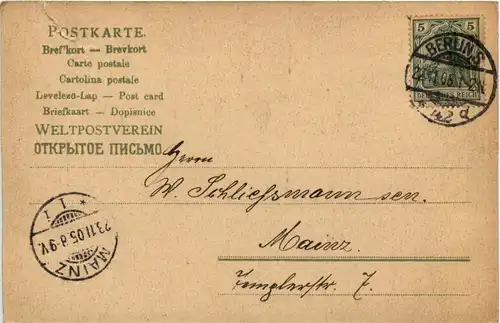 POSTKARTE.
Bref'kort — Brevkort
Carte postale
Cartolina postale
Levelezö-Lap — Post card
Briefkaart — Dopisnice
WELTPOSTVEREIN
ОТКРЫТОЕ ПИСЬМО
5 5
BERLIN S
42 d
Herrn
W. Schliessmann sen.
Mainz.
Templerstr. 7.
* 1 1
23.11.05.8-9V.
MAINZ